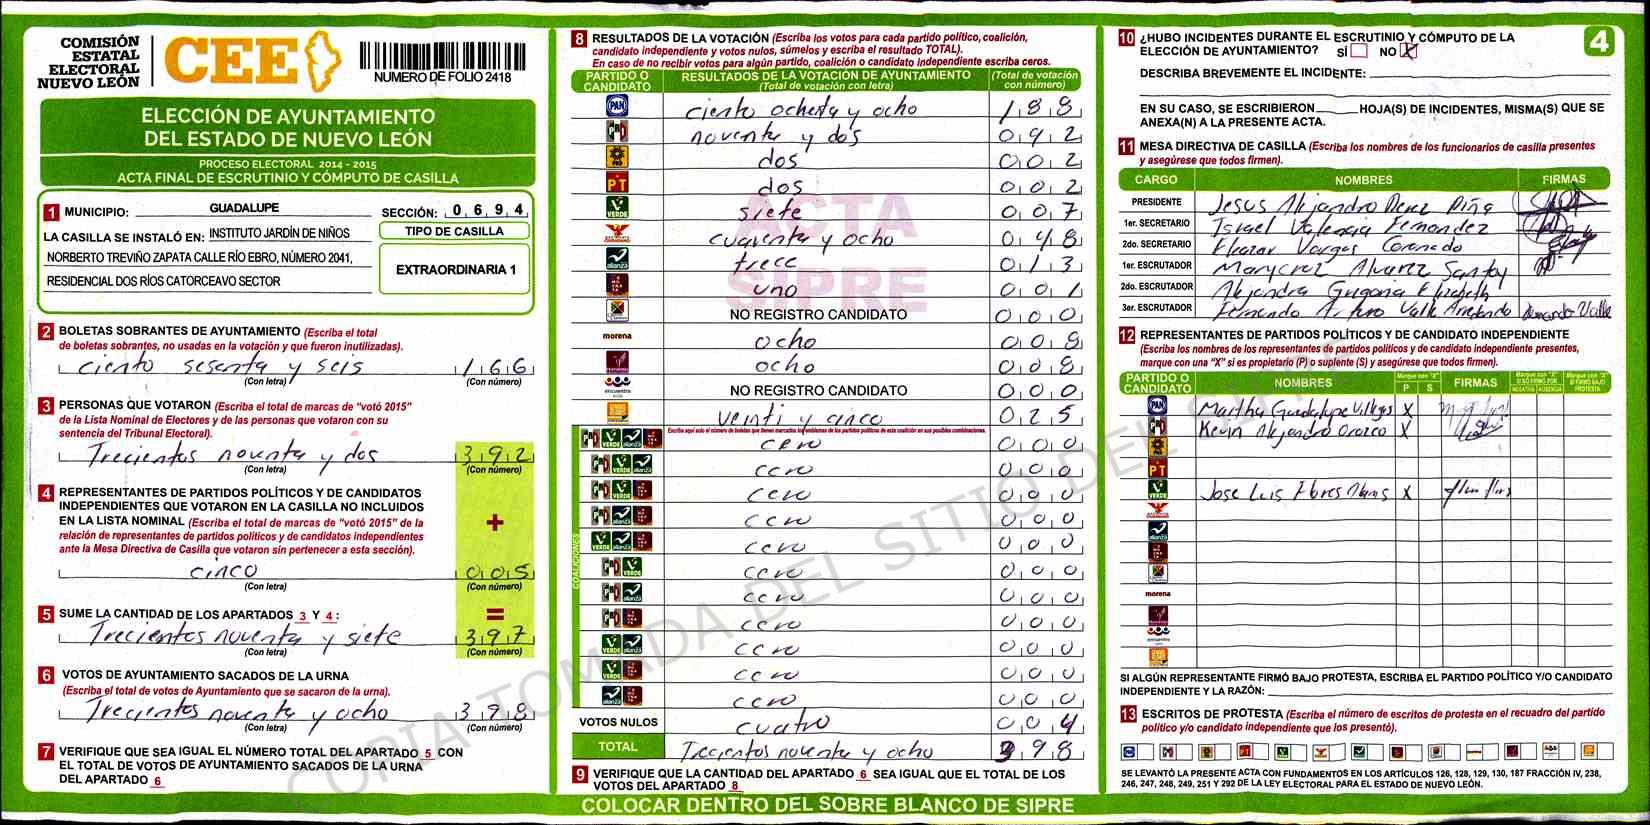 COMISIÓN
ESTATAL
ELECTORAL
NUEVO LEÓN
CEE
NUMERO DE FOLIO 2418
ELECCIÓN DE AYUNTAMIENTO
DEL ESTADO DE NUEVO LEÓN
PROCESO ELECTORAL 2014 - 2015
ACTA FINAL DE ESCRUTINIO Y CÓMPUTO DE CASILLA
1 MUNICIPIO: GUADALUPE SECCIÓN: 0 6 9 4
LA CASILLA SE INSTALÓ EN: INSTITUTO JARDÍN DE NIÑOS
NORBERTO TREVIÑO ZAPATA CALLE RÍO EBRO, NÚMERO 2041,
RESIDENCIAL DOS RÍOS CATORCEAVO SECTOR
TIPO DE CASILLA
EXTRAORDINARIA 1
2 BOLETAS SOBRANTES DE AYUNTAMIENTO (Escriba el total
de boletas sobrantes, no usadas en la votación y que fueron inutilizadas).
ciento sesenta y seis 166
(Con letra) (Con número)
3 PERSONAS QUE VOTARON (Escriba el total de marcas de “votó 2015”
de la Lista Nominal de Electores y de las personas que votaron con su
sentencia del Tribunal Electoral).
Trecientos noventa y dos 392
(Con letra) (Con número)
4 REPRESENTANTES DE PARTIDOS POLÍTICOS Y DE CANDIDATOS
INDEPENDIENTES QUE VOTARON EN LA CASILLA NO INCLUIDOS
EN LA LISTA NOMINAL (Escriba el total de marcas de “votó 2015” de la
relación de representantes de partidos políticos y de candidatos independientes
ante la Mesa Directiva de Casilla que votaron sin pertenecer a esta sección).
+
cinco 005
(Con letra) (Con número)
=
5 SUME LA CANTIDAD DE LOS APARTADOS 3 Y 4 :
Trecientos noventa y siete 397
(Con letra) (Con número)
6 VOTOS DE AYUNTAMIENTO SACADOS DE LA URNA
(Escriba el total de votos de Ayuntamiento que se sacaron de la urna).
Trecientos noventa y ocho 398
(Con letra) (Con número)
7 VERIFIQUE QUE SEA IGUAL EL NÚMERO TOTAL DEL APARTADO 5 CON
EL TOTAL DE VOTOS DE AYUNTAMIENTO SACADOS DE LA URNA
DEL APARTADO 6
8 RESULTADOS DE LA VOTACIÓN (Escriba los votos para cada partido político, coalición,
candidato independiente y votos nulos, súmelos y escriba el resultado TOTAL).
En caso de no recibir votos para algún partido, coalición o candidato independiente escriba ceros.
PARTIDO O CANDIDATO RESULTADOS DE LA VOTACIÓN DE AYUNTAMIENTO (Total de votación con letra) (Total de votación con número)
PAN ciento ochenta y ocho 188
PRD noventa y dos 092
PRD dos 002
PT dos 002
VERDE siete 007
cuarenta y ocho 048
alianza trece 013
uno 001
NO REGISTRO CANDIDATO 000
morena ocho 008
ocho 008
encuentro NO REGISTRO CANDIDATO 000
veinti y cinco 025
Escriba aquí solo el número de boletas que tienen marcados los emblemas de los partidos políticos de esta coalición en sus posibles combinaciones.
COALICIONES
VERDE alianza cero 000
VERDE alianza cero 000
VERDE cero 000
alianza cero 000
VERDE alianza cero 000
VERDE cero 000
alianza cero 000
cero 000
VERDE alianza cero 000
VERDE cero 000
alianza cero 000
VOTOS NULOS cuatro 004
TOTAL Trecientos noventa y ocho 398
9 VERIFIQUE QUE LA CANTIDAD DEL APARTADO 6 SEA IGUAL QUE EL TOTAL DE LOS
VOTOS DEL APARTADO 8
ACTA
SIPRE
COPIA TOMADA DEL SITIO DEL SIPRE
COLOCAR DENTRO DEL SOBRE BLANCO DE SIPRE
4
10 ¿HUBO INCIDENTES DURANTE EL ESCRUTINIO Y CÓMPUTO DE LA
ELECCIÓN DE AYUNTAMIENTO? SÍ NO X
DESCRIBA BREVEMENTE EL INCIDENTE:
EN SU CASO, SE ESCRIBIERON HOJA(S) DE INCIDENTES, MISMA(S) QUE SE
ANEXA(N) A LA PRESENTE ACTA.
11 MESA DIRECTIVA DE CASILLA (Escriba los nombres de los funcionarios de casilla presentes
y asegúrese que todos firmen).
CARGO NOMBRES FIRMAS
PRESIDENTE Jesus Alejandro Perez Piña
1er. SECRETARIO Israel Valencia Fernandez
2do. SECRETARIO Eleazar Vargas Coronado
1er. ESCRUTADOR Marycruz Alvarez Santoy
2do. ESCRUTADOR Alejandra Gregoria Elizabeth
3er. ESCRUTADOR Fernando Arturo Valle Arredondo Fernando Valle
12 REPRESENTANTES DE PARTIDOS POLÍTICOS Y DE CANDIDATO INDEPENDIENTE
(Escriba los nombres de los representantes de partidos políticos y de candidato independiente presentes,
marque con una “X” si es propietario (P) o suplente (S) y asegúrese que todos firmen).
PARTIDO O CANDIDATO NOMBRES Marque con “X” P S FIRMAS Marque con “X” SI NO FIRMÓ POR NEGATIVA AUSENCIA Marque con “X” SI FIRMÓ BAJO PROTESTA
PAN Martha Guadalupe Villegas X
Kevin Alejandro Orozco X
PT
VERDE Jose Luis Flores X
alianza
morena
encuentro
SI ALGÚN REPRESENTANTE FIRMÓ BAJO PROTESTA, ESCRIBA EL PARTIDO POLÍTICO Y/O CANDIDATO
INDEPENDIENTE Y LA RAZÓN:
13 ESCRITOS DE PROTESTA (Escriba el número de escritos de protesta en el recuadro del partido
político y/o candidato independiente que los presentó).
SE LEVANTÓ LA PRESENTE ACTA CON FUNDAMENTOS EN LOS ARTÍCULOS 126, 128, 129, 130, 187 FRACCIÓN IV, 238,
246, 247, 248, 249, 251 Y 292 DE LA LEY ELECTORAL PARA EL ESTADO DE NUEVO LEÓN.